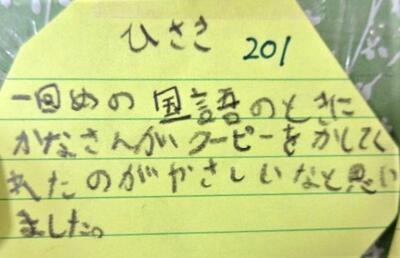 ひさき 201
一回めの国語のときに
かなさんがクーピーをかしてく
れたのがやさしいなと思い
ました。